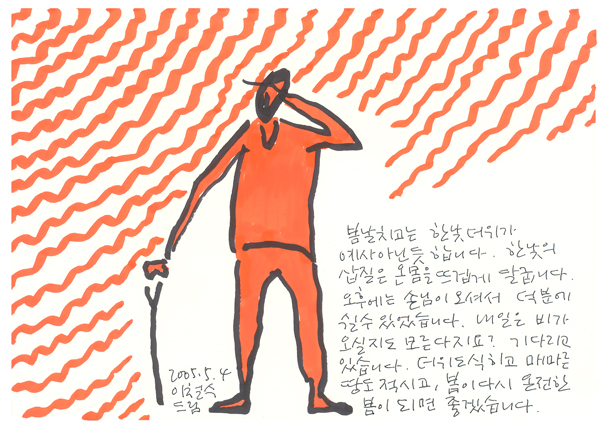 봄날치고는 한낮더위가
예사아닌듯 합니다. 한낮의
삽질은 온몸을 뜨겁게 달굽니다.
오후에는 손님이 오셔서 덕분에
쉴수 있었습니다. 내일은 비가
오실지도 모른다지요? 기다리고
있습니다. 더위도 식히고 메마른
땅도 적시고, 봄이 다시 온전한
봄이 되면 좋겠습니다.
2005.5.4
이철수
드림